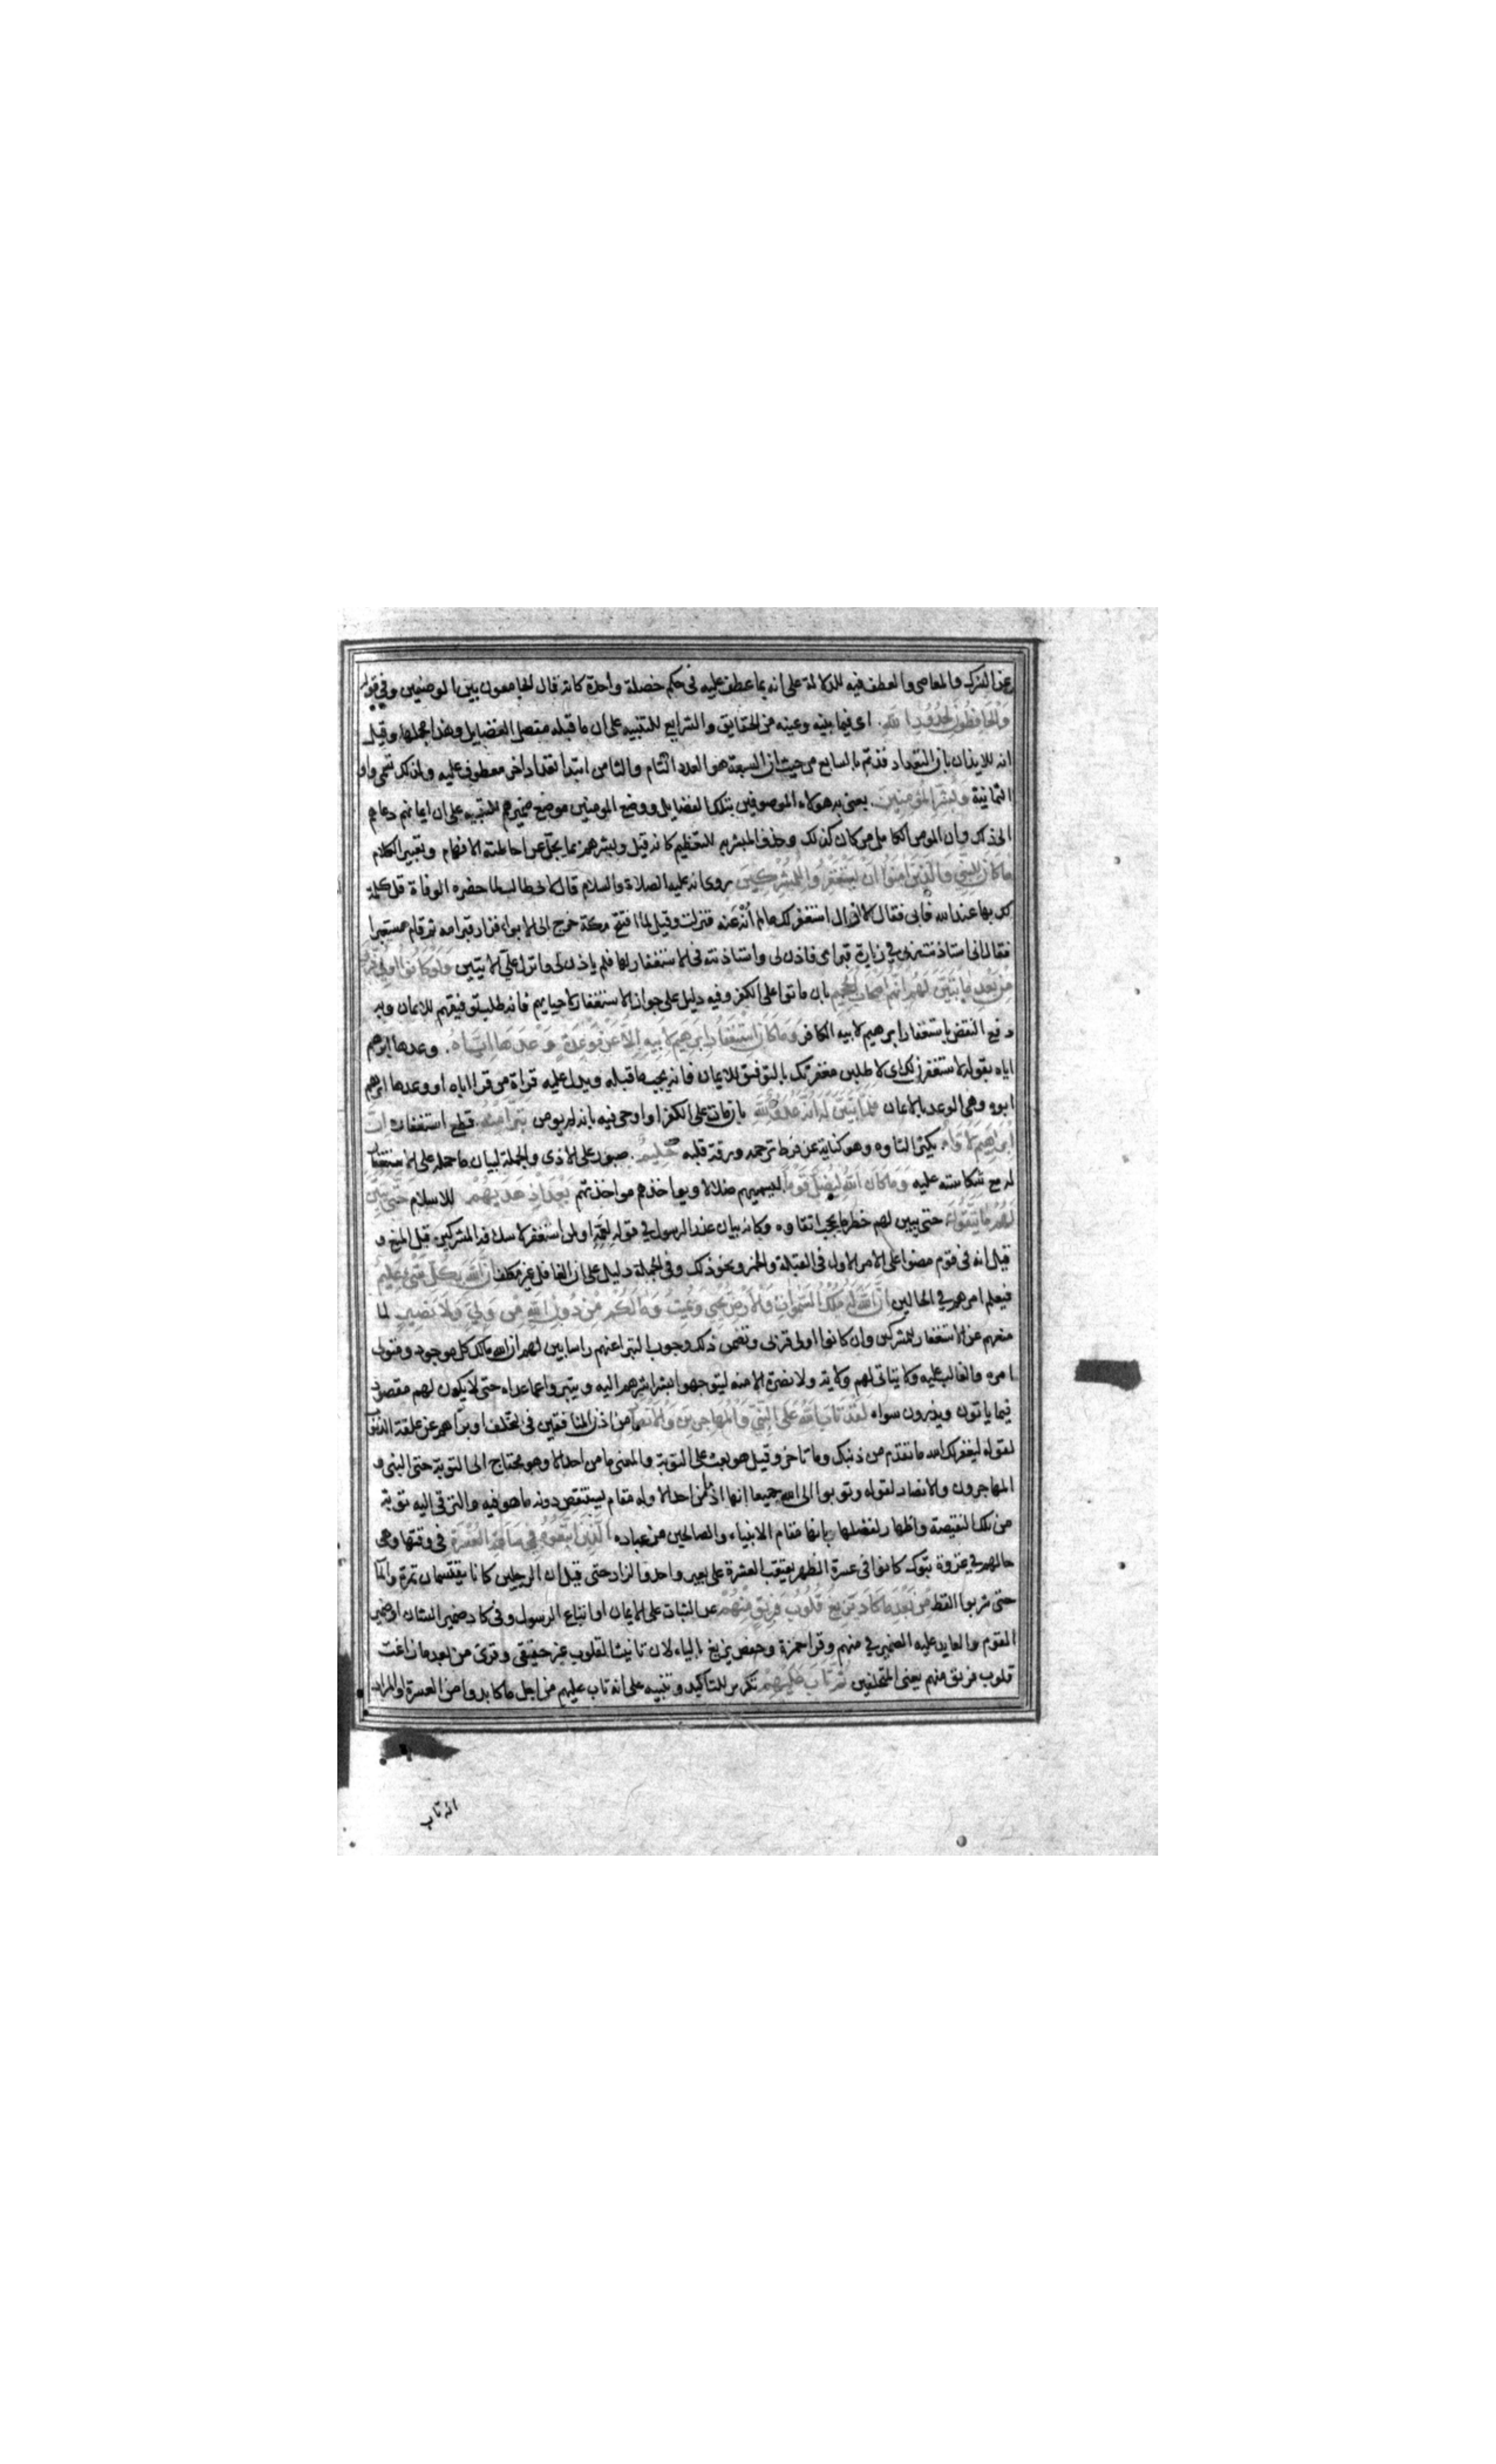 عن الشرك والمعاصي والعطف فيه للدلالة على انه بما عطف عليه في حكم خصلة واحدة كانه قال الجامعون بين الوصفين وفي قوله
وَالْحَافِظُونَ لِحُدُودِ اللَّهِ. اى فيما بينه وعينه من الحقايق والشرايع للتنبيه على ان ما قبله مفصل الفضايل وهذا مجملها وقيل
انه للايذان بان التعداد قد تم بالسابع من حيث ان السبعة هو العدد التام والثامن ابتدا تعداد اخر معطوف عليه ولذلك تسمى واو
الثمانية وَبَشِّرِ الْمُؤْمِنِينَ. يعنى به هولاء الموصوفين بتلك الفضايل ووضع المومنين موضع ضميرهم للتنبيه على ان ايمانهم دعاهم
الى ذلك وان المومن الكامل من كان كذلك وحذف المبشر به للتعظيم كانه قيل وبشرهم بما يجل عن احاطة الافهام وتعبير الكلام
مَا كَانَ لِلنَّبِيِّ وَالَّذِينَ آمَنُوا أَنْ يَسْتَغْفِرُوا لِلْمُشْرِكِينَ روى انه عليه الصلاة والسلام قال لابى طالب لما حضره الوفاة قل كلمة
لك بها عند الله فابى فقال لا ازال استغفر لك ما لم اُنْهَ عنه فنزلت وقيل لما افتتح مكة خرج الى الابواء فزار قبر امه ثم قام مستعبرا
فقال انى استاذنت ربى في زيارة قبر امى فاذن لى واستاذنته في الاستغفار لها فلم ياذن لى وانزل علىّ الايتين وَلَوْ كَانُوا أُولِي قُرْبَى
مِنْ بَعْدِ مَا تَبَيَّنَ لَهُمْ أَنَّهُمْ أَصْحَابُ الْجَحِيمِ بان ماتوا على الكفر وفيه دليل على جواز الاستغفار لاحيايهم فانه طلب توفيقهم للايمان وبه
دفع النقض باستغفار ابرهيم لابيه الكافر وَمَا كَانَ اسْتِغْفَارُ إِبْرَهِيمَ لِأَبِيهِ إِلَّا عَنْ مَوْعِدَةٍ وَعَدَهَا إِيَّاهُ. وعدها ابرهيم
اياه بقوله لاستغفرن لك اى لاطلبن مغفرتك بالتوفيق للايمان فانه يجب ما قبله ويدل عليه قراة من قرا اباه او وعدها ابرهيم
ابوه وهى الوعد بالايمان فَلَمَّا تَبَيَّنَ لَهُ أَنَّهُ عَدُوٌّ لِلَّهِ بان مات على الكفر او اوحى فيه بانه لن يومن تَبَرَّأَ مِنْهُ. قطع استغفاره إِنَّ
إِبْرَاهِيمَ لَأَوَّاهٌ. يكثر التاوه وهو كناية عن فرط ترحمه ورقة قلبه حَلِيمٌ. صبور على الاذى والجملة لبيان ما حمله على الاستغفار
له مع شكاسته عليه وَمَا كَانَ اللَّهُ لِيُضِلَّ قَوْمًا ليسميهم ضلالا ويواخذهم مواخذتهم بَعْدَ إِذْ هَدَيهُمْ للاسلام حَتَّى يُبَيِّنَ
لَهُمْ مَا يَتَّقُونَ. حتى يبين لهم خطر ما يجب اتقاوه وكانه بيان عند الرسول في قوله لعمه او لمن استغفر لاسلافه المشركين قبل المنع و
قيل انه في قوم مضوا على الامر الاول في القبلة والخمر ونحو ذلك وفي الجملة دليل على ان الغافل غير مكلف إِنَّ اللَّهَ بِكُلِّ شَيْءٍ عَلِيمٌ
فيعلم امرهم في الحالين إِنَّ اللَّهَ لَهُ مُلْكُ السَّمٰوَاتِ وَالْأَرْضِ يُحْيِي وَيُمِيتُ وَمَا لَكُمْ مِنْ دُونِ اللَّهِ مِنْ وَلِيٍّ وَلَا نَصِيرٍ لما
منعهم عن الاستغفار للمشركين وان كانوا اولى قربى وتضمن ذلك وجوب التبرا عنهم راسا بين لهم ان الله مالك كل موجود ومتولى
امره والغالب عليه ولا يتاتى لهم ولاية ولا نصرة الا منه ليتوجهوا بشراشرهم اليه ويتبروا عما عداه حتى لا يكون لهم مقصود
فيما ياتون ويذرون سواه لَقَدْ تَابَ اللَّهُ عَلَى النَّبِيِّ وَالْمُهَاجِرِينَ وَالْأَنْصَارِ من اذن المنافقين في التخلف او براهم عن علقة الذنوب
لقوله ليغفر لك الله ما تقدم من ذنبك وما تاخر وقيل هو بعث على التوبة والمعنى ما من احد الا وهو محتاج الى التوبة حتى النبى و
المهاجرون والانصار لقوله وتوبوا الى الله جميعا اذ ما من احد الا وله مقام يستنقص دونه ما هو فيه والترقى اليه توبة
من تلك النقيصة واظهار لفضلها بانها مقام الانبياء والصالحين من عباده الَّذِينَ اتَّبَعُوهُ فِي سَاعَةِ الْعُسْرَةِ في وقتها وهى
حالهم في غزوة تبوك كانوا في عسرة الظهر يعتقب العشرة على بعير واحد والزاد حتى قيل ان الرجلين كانا يقتسمان تمرة والماء
حتى شربوا الفظ مِنْ بَعْدِ مَا كَادَ تَزِيغُ قُلُوبُ فَرِيقٍ مِنْهُمْ عن الثبات على الايمان او اتباع الرسول وفي كاد ضمير الشان او ضمير
القوم والعايد عليه الضمير في منهم وقرا حمزة وحفص يزيغ بالياء لان تانيث القلوب غير حقيقى وقرئ من بعد ما زاغت
قلوب فريق منهم يعنى المتخلفين ثُمَّ تَابَ عَلَيْهِمْ تكرير للتاكيد وتنبيه على انه تاب عليهم من اجل ما كابدوا من العسرة او المراد
انه تاب